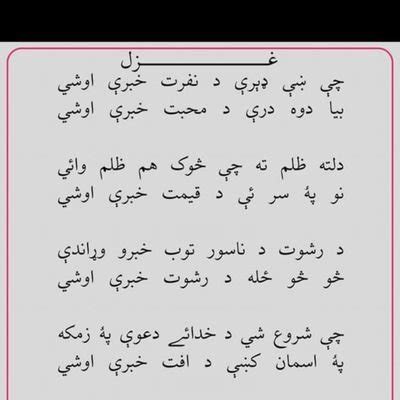 غـــــزل
چې ښې ډېرې د نفرت خبرې اوشي
بيا دوه درې د محبت خبرې اوشي
دلته ظلم ته چې څوک هم ظلم وائي
نو پۀ سر ئې د قيمت خبرې اوشي
د رشوت د ناسور توب خبرو وړاندې
څو څو ځله د رشوت خبرې اوشي
چې شروع شي د خدائے دعوې پۀ زمکه
پۀ اسمان کښې د افت خبرې اوشي